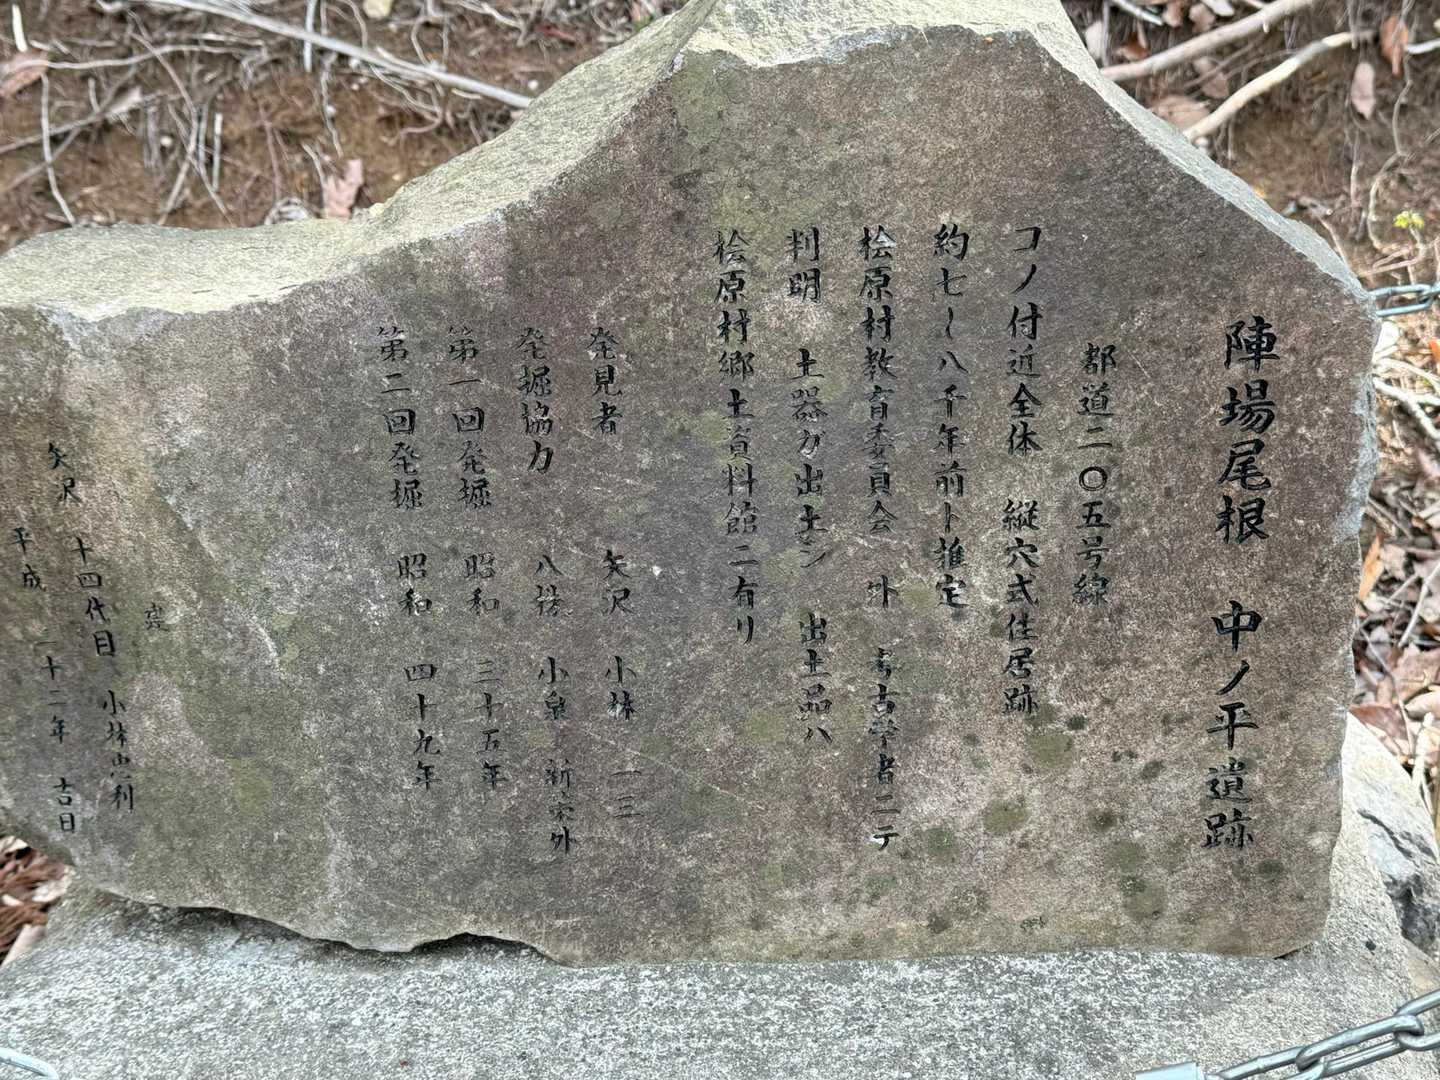 陣場尾根 中ノ平遺跡
都道二〇五号線
コノ付近全体 縦穴式住居跡
約七〜八千年前ト推定
桧原村教育委員会 外 考古学者ニテ
判明 土器ガ出土シ 出土品ハ
桧原村郷土資料館ニ有リ
発見者 矢沢 小林 一三
発掘協力 八株 小泉 新
第一回発掘 昭和 三十五年
第二回発掘 昭和 四十九年
矢沢 十四代目 小林 利
平成 二十二年 吉日